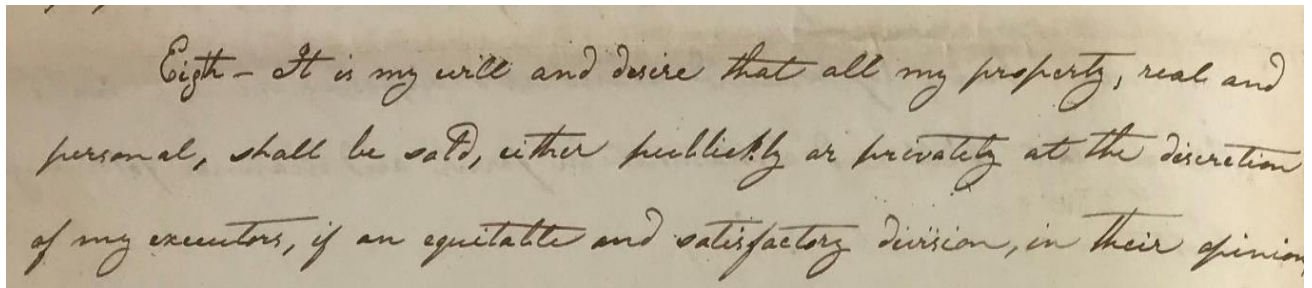 Eigth - It is my will and desire that all my property, real and
personal, shall be sold, either publickly or privately at the discretion
of my executors, if an equitable and satisfactory division, in their opinion,